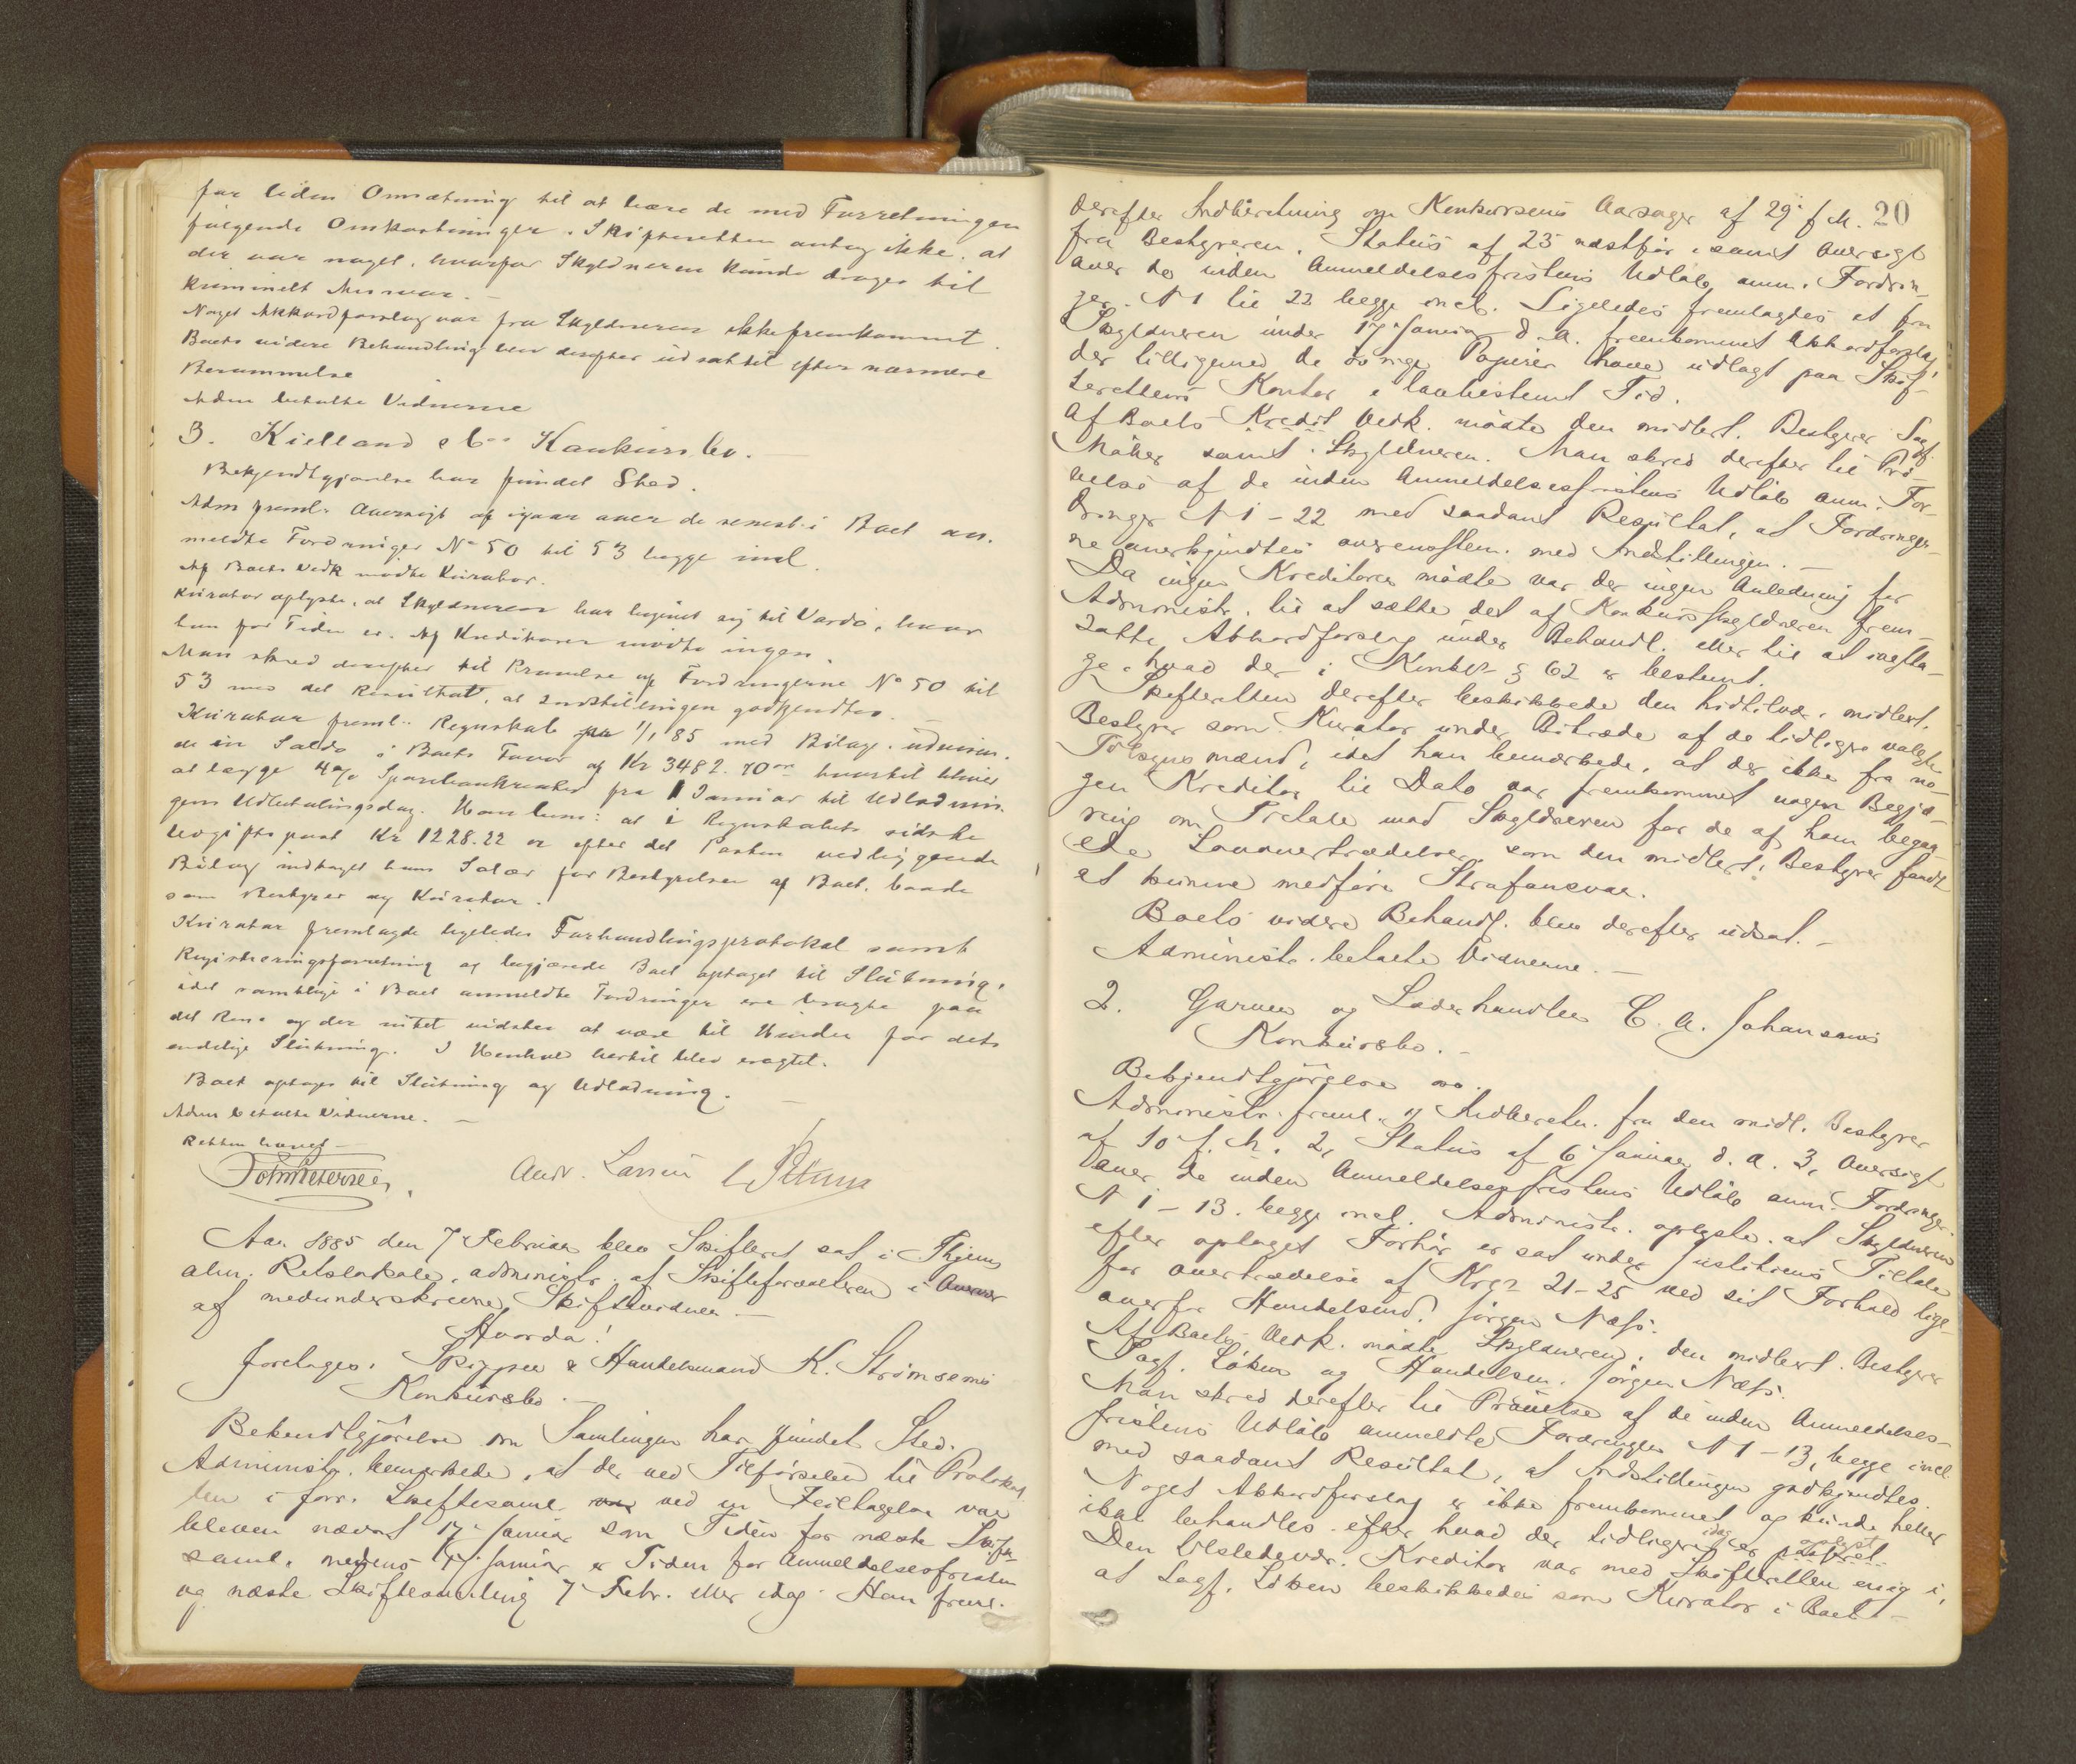 for liden Omsætning til at bære de med Forretningen
følgende Omkostninger. Skifteretten antog ikke, at
der var noget, hvorfor Skyldneren kunde drages til
kriminelt Ansvar. –
Noget Akkordforslag var fra Skyldneren ikke fremkommet.
Boets videre Behandling blev derefter udsat til efter nærmere
Berammelse
Adm betalte Vidnerne
3. Kielland & Co Konkursbo. –
Bekjendtgjørelse har fundet Sted.
Adm freml. Oversigt af igaar over de senest i Boet an-
meldte Fordringer No 50 til 53 begge incl.
Af Boets Vedk mødte Kurator.
Kurator oplyste, at Skyldneren har begivet sig til Vardø, hvor
han for Tiden er. Af Kreditorer mødte ingen.
Man skred derefter til Prøvelse af Fordringerne No 50 til
53 med det Resultat, at Indstillingen godkjendtes. –
Kurator freml. Regnskab pr 1/1 85 med Bilage. udvisen-
de en Saldo i Boets Favør af Kr 3482.70 hvortil bliver
at lægge 4% Sparebankrenter fra 1 Januar til Udlodnin-
gens Udbetalingsdag. Han bem: at i Regnskabets sidste
Udgiftspost Kr 1228.22 er efter det Posten vedliggende
Bilag indtaget hans Salær for Bestyrelsen af Boet, baade
som Bestyrer og Kurator.
Kurator fremlagde ligeledes Forhandlingsprotokol samt
Registreringsforretning og begjærede Boet optaget til Slutning,
idet samtlige i Boet anmeldte Fordringer ere bragte paa
det Rene og der intet vidstes at være til Hinder for dets
endelige Slutning. I Henhold hertil blev eragtet.
Boet optages til Slutning og Udlodning. –
Adm betalte Vidnerne. –
Retten hævet –
Andr. Larsen
Aar 1885 den 7 Februar blev Skifteret sat i Thjems
alm. Retslokale, administr. af Skifteforvalteren i Overvær
af medunderskrevne Skiftevidner. –
Hvorda!
foretages. Skipper & Handelsmand K. Strømsems
Konkursbo. –
Bekendtgjørelse om Samlingen har fundet Sted.
Administr. bemærkede, at der ved Tilførselen til Protokol-
len i forr. Skiftesaml. var ved en Feiltagelse var
bleven nævnt 17. Januar som Tiden for næste Skifte-
saml., medens 17. Januar er Tiden for Anmeldelsesfristen
og næste Skiftesamling 7 Febr. eller idag. Han freml.
20
derefter Indberetning om Konkursens Aarsager af 29. f. M.
fra Bestyreren. Status af 23 næstfør. samt Oversigt
over de inden Anmeldelsesfristens Udløb anm. Fordrin-
ger. N 1 til 22 begge incl. Ligeledes fremlagdes et fra
Skyldneren under 17 Januar d. A. fremkommet Akkordforslag,
der tilligemed de øvrige Papirer have udlagt paa Skif-
terettens Kontor i lovbestemt Tid.
Af Boets Kredit Vedk. mødte den midlert. Bestyrer Sagf.
samt Skyldneren. Man skred derefter til Prø-
velse af de inden Anmeldelsesfristens Udløb anm. For-
dringer N 1 – 22 med saadant Resultat, at Fordringer-
ne anerkjendtes overensstem. med Indstillingen. –
Da ingen Kreditorer mødte var der ingen Anledning for
Administr. til at sætte det af Konkursskyldneren frem-
satte Akkordforslag under Behandl. eller til at iagtta-
ge hvad der i Konkl § 62 er bestemt.
Skifteretten derefter beskikkede den hidtilvær. midlert.
Bestyrer som Kurator under Bitræde af de tidligere valgte
Tilsynsmænd, idet han bemærkede, at der ikke fra no-
gen Kreditor til Dato var fremkommet nogen Begjæ-
ring om Tiltale mod Skyldneren for de af ham begaa-
ede Lovovertrædelser, som den midlert. Bestyrer fandt
at kunne medføre Strafansvar.
Boets videre Behandl. blev derefter udsat. –
Administr. betalte Vidnerne. –
2. Garver og Læderhandler C. A. Johansens
Konkursbo. –
Bekjendtgjørelse
Administr. freml. 1, Indberetn. fra den midl. Bestyrer
af 30 f. M. 2, Status af 6 Januar d. A. 3, Oversigt
over de inden Anmeldelsesfristens Udløb anm. Fordringer.
N 1 – 13. begge incl. Administr. oplyste. at Skyldneren
efter optaget Forhør er sat under Justitiens Tiltale
for Overtrædelse af 21-25 ved sit Forhold lige-
overfor Handelsmd. Jørgen Næss.
Af Boets Vedk. mødte Skyldneren, den midlert. Bestyrer
Sagf. Løken og Handelsm. Jørgen Næss.
Man skred derefter til Prøvelse af de inden Anmeldelses-
fristens Udløb anmeldte Fordringer N 1 – 13, begge incl.
med saadant Resultat, at Indstillingen godkjendtes.
Noget Akkordforslag er ikke fremkommet og kunde heller
ikke behandles efter hvad der tidligere idag er oplyst.
Den tilstedevær. Kreditor var med Skifteretten enig i,
at Sagf. Løken beskikkedes som Kurator i Boet –